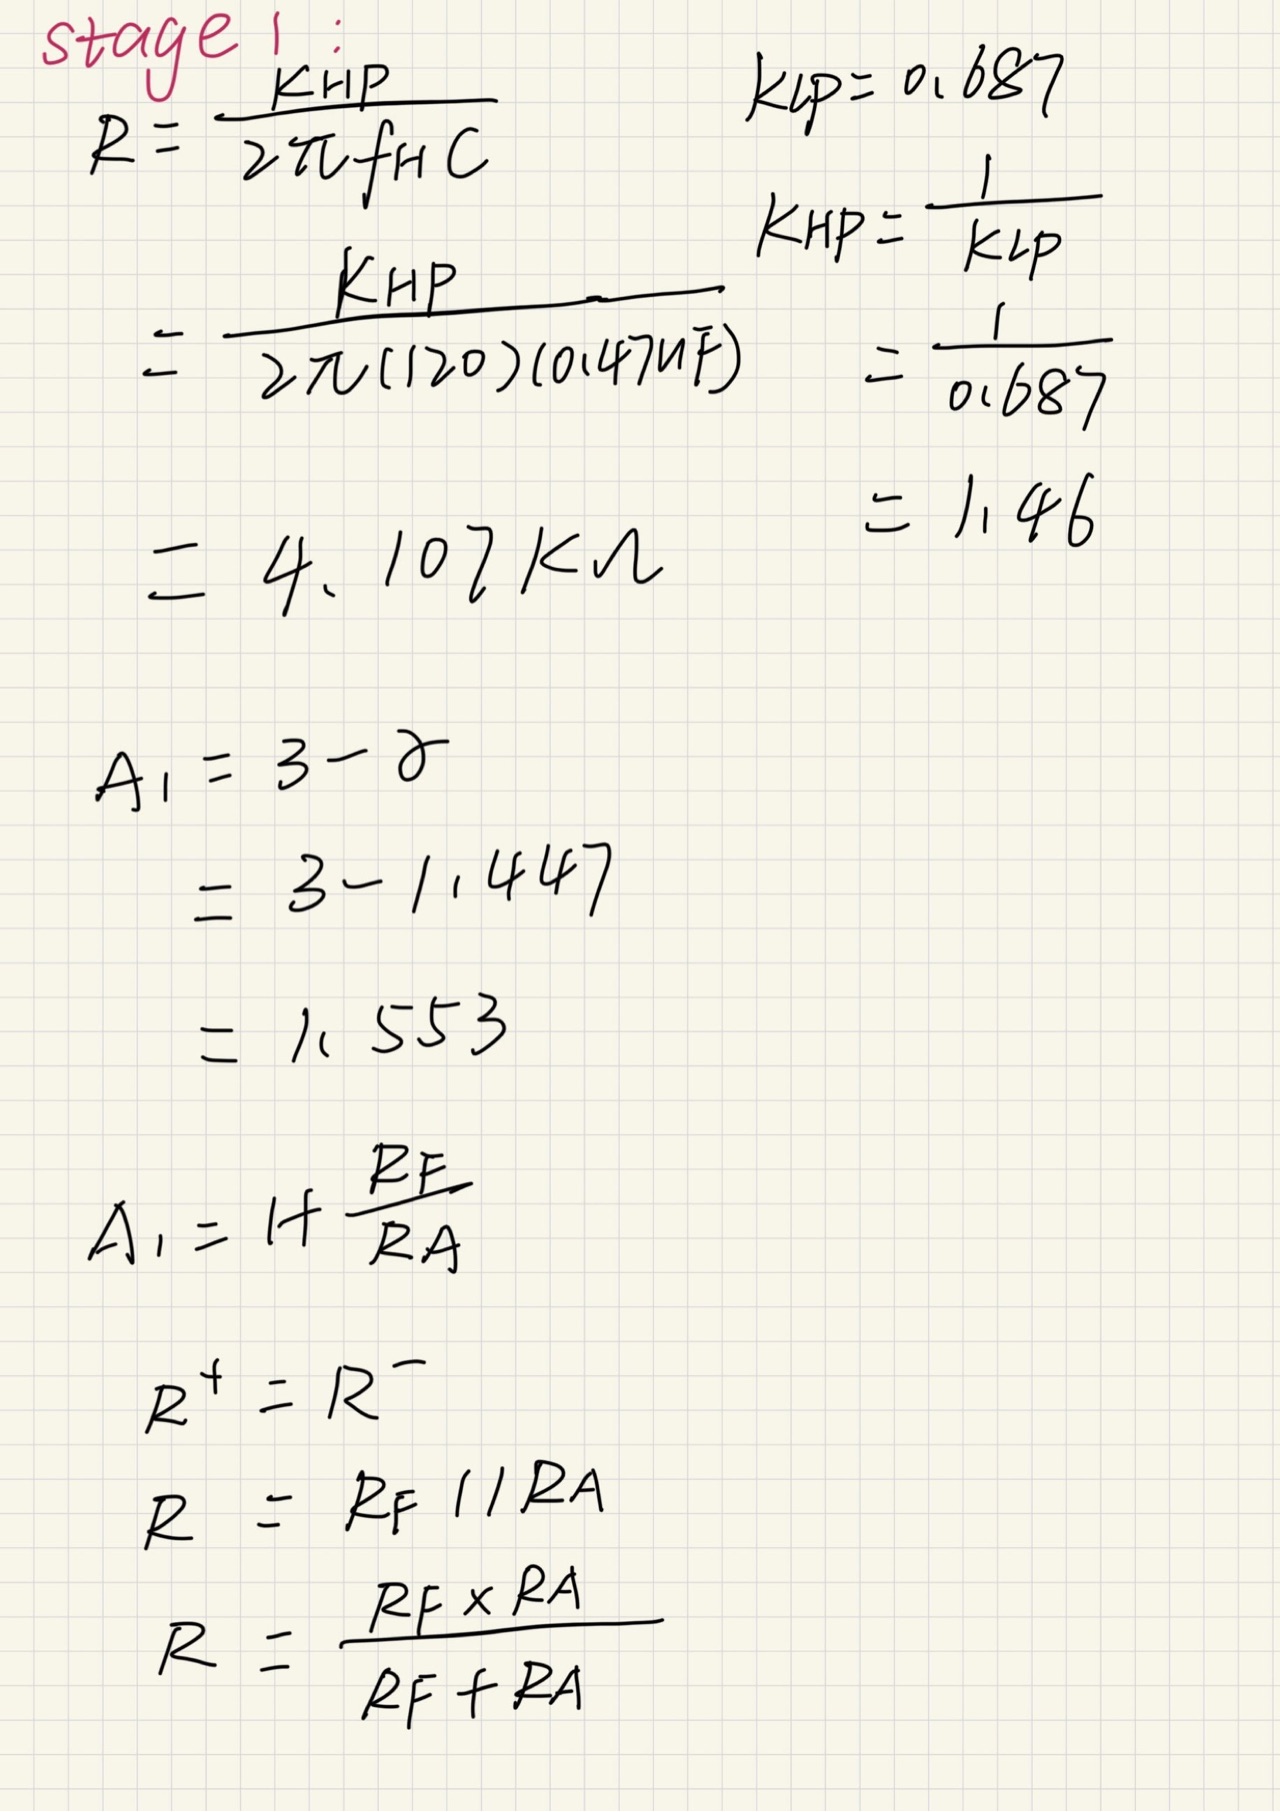 stage 1 :
R = KHP / 2π fH C
= KHP / 2π(120)(0.47uF)
= 4.107 KΩ
KLP = 0.687
KHP = 1 / KLP
= 1 / 0.687
= 1.46
A1 = 3 - γ
= 3 - 1.447
= 1.553
A1 = 1 + RF / RA
R⁺ = R⁻
R = RF // RA
R = RF × RA / RF + RA